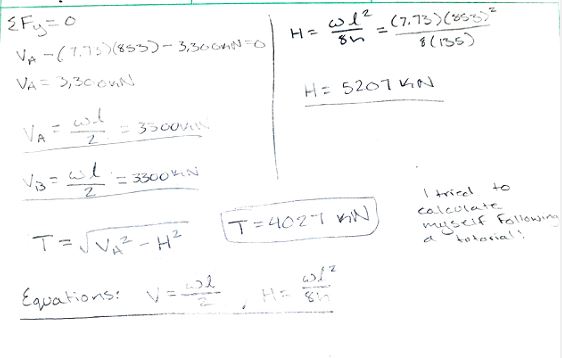 ΣFy = 0
VA - (7.73)(853) - 3,300kN = 0
VA = 3,300kN
VA = ωl/2 = 3300kN
VB = ωl/2 = 3300kN
H = ωl²/8h = (7.73)(853)²/8(135)
H = 5207 kN
T = √VA² - H²
T = 4027 kN
I tried to
calculate
myself following
a tutorial!
Equations: V = ωl/2 , H = ωl²/8h